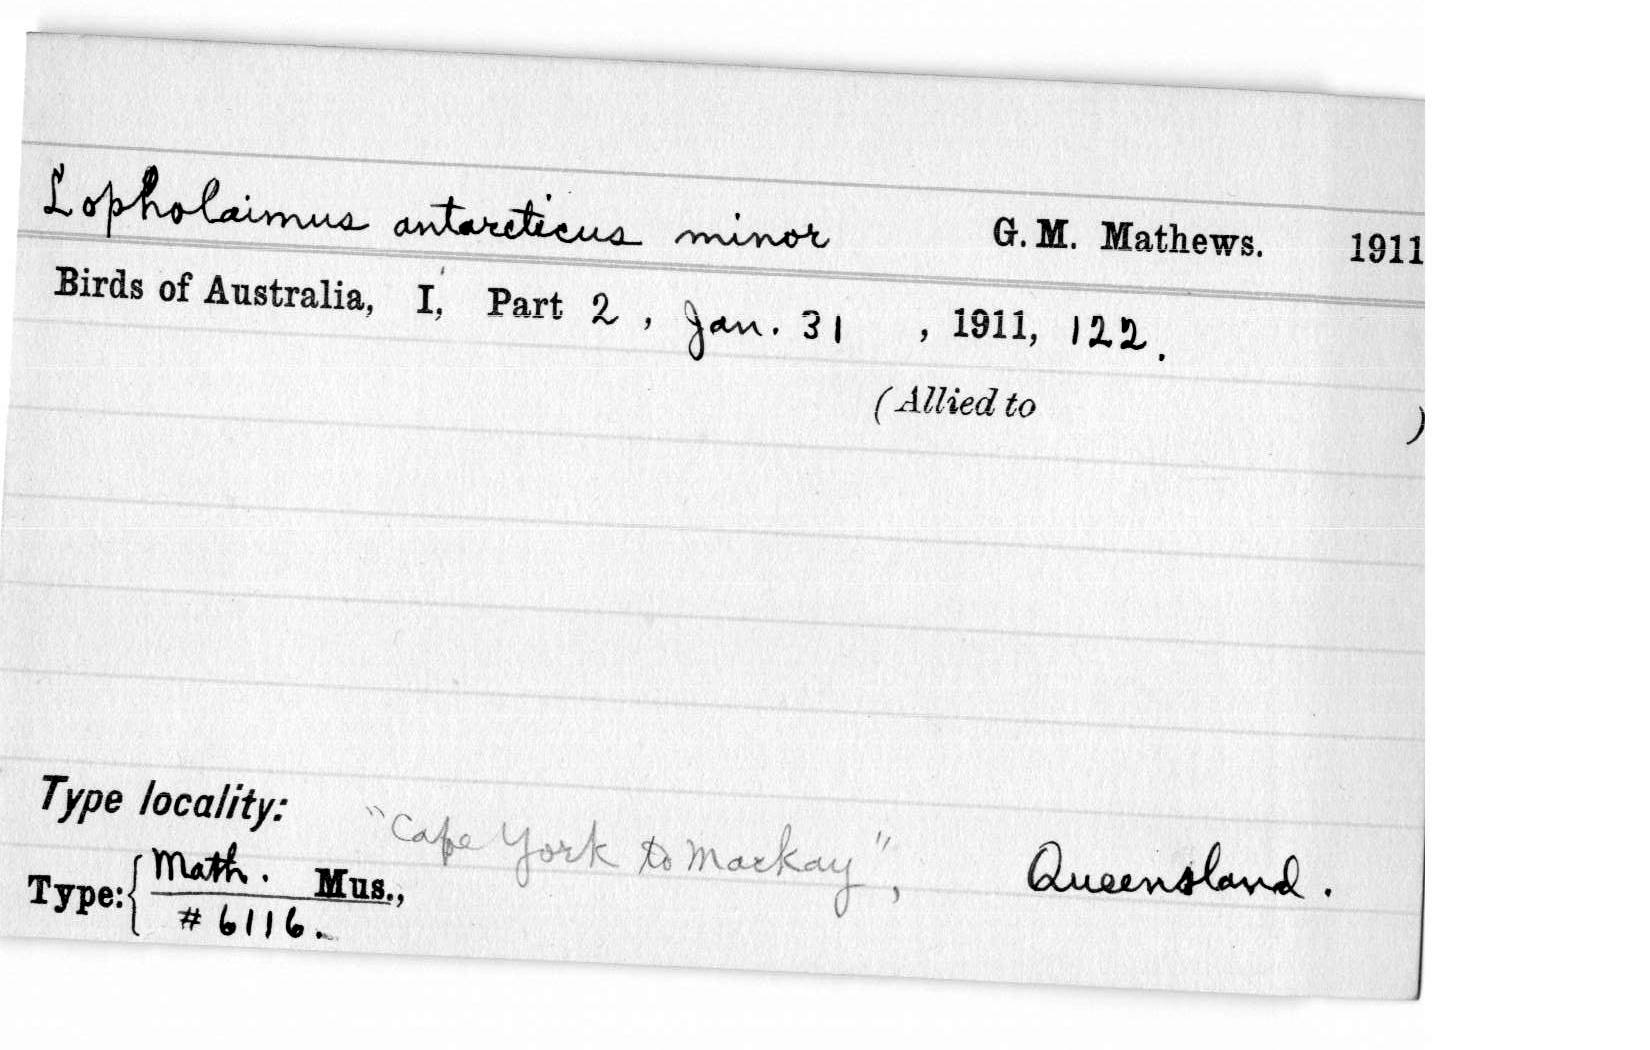 Lopholaimus antarcticus minor G. M. Mathews. 1911
Birds of Australia, I, Part 2, Jan. 31, 1911, 122.
(Allied to )
Type locality: "Cape York to Mackay", Queensland.
Type: { Math. Mus.,
# 6116.